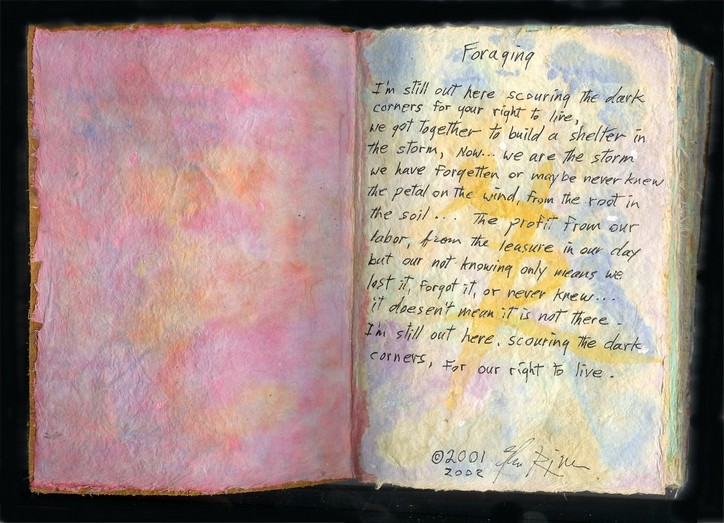 Foraging
I'm still out here scouring the dark
corners for your right to live,
we got together to build a shelter in
the storm, Now... we are the storm
we have forgetten or maybe never knew
the petal on the wind, from the root in
the soil... The profit from our
labor, from the leasure in our day
but our not knowing only means we
lost it, forgot it, or never knew...
it doesen't mean it is not there.
I'm still out here, scouring the dark
corners, for our right to live.
©2001
2002